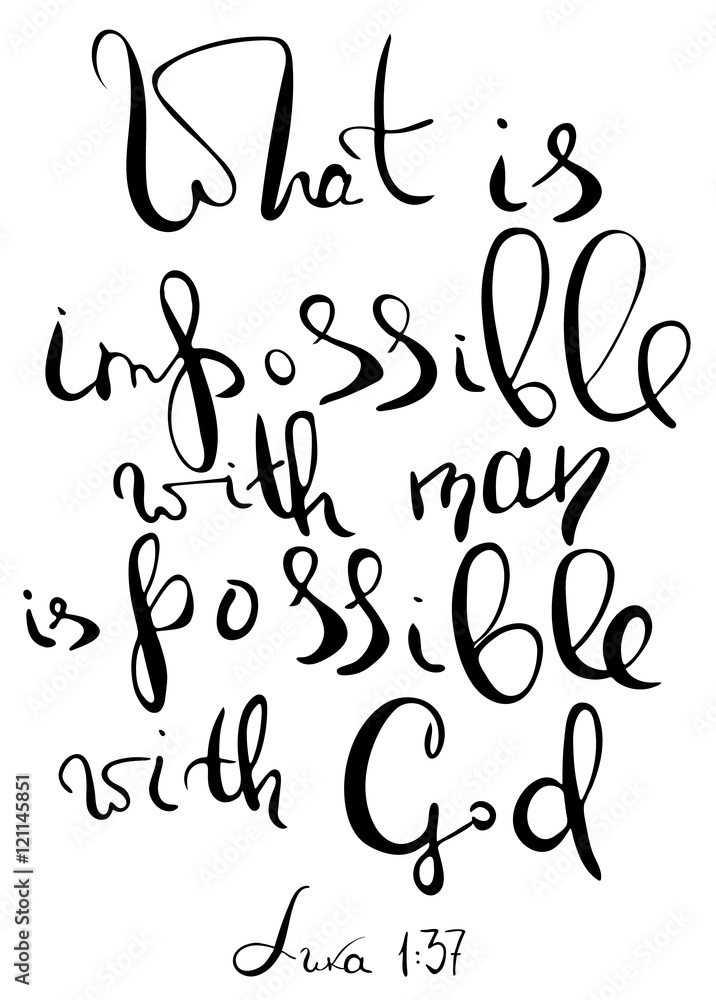 What is
impossible
with man
is possible
with God
Luka 1:37
Adobe Stock | #121145851